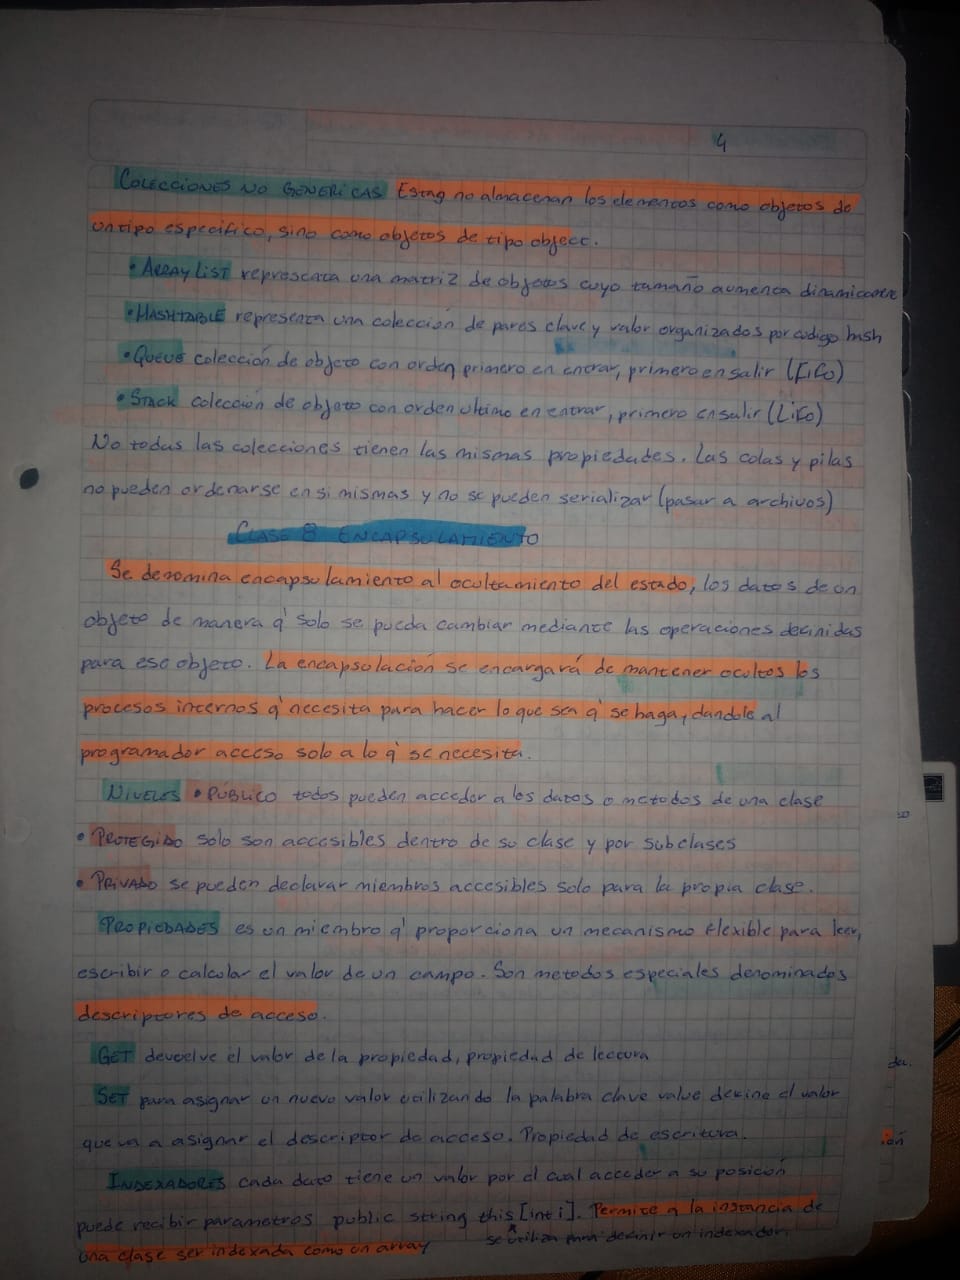 4
COLECCIONES NO GENERICAS Estas no almacenan los elementos como objetos de
un tipo especifico, sino como objetos de tipo object.
• ARRAY LIST representa una matriz de objetos cuyo tamaño aumenta dinamicamente
• HASHTABLE representa una colección de pares clave y valor organizados por codigo hash
• QUEUE colección de objeto con orden primero en entrar, primero en salir (FiFo)
• STACK colección de objeto con orden ultimo en entrar, primero en salir (LiFo)
No todas las colecciones tienen las mismas propiedades. Las colas y pilas
no pueden ordenarse en si mismas y no se pueden serializar (pasar a archivos)
CLASE 8 ENCAPSULAMIENTO
Se denomina encapsulamiento al ocultamiento del estado, los datos de un
objeto de manera q' solo se pueda cambiar mediante las operaciones definidas
para ese objeto. La encapsulación se encargará de mantener ocultos los
procesos internos q' necesita para hacer lo que sea q' se haga, dandole al
programador acceso solo a lo q' se necesita.
NIVELES • PÚBLICO todos pueden acceder a los datos o metodos de una clase
• PROTEGIDO solo son accesibles dentro de su clase y por subclases
• PRIVADO se pueden declarar miembros accesibles solo para la propia clase.
PROPIEDADES es un miembro q' proporciona un mecanismo flexible para leer,
escribir o calcular el valor de un campo. Son metodos especiales denominados
descriptores de acceso.
GET devuelve el valor de la propiedad, propiedad de lectura
SET para asignar un nuevo valor utilizando la palabra clave value define el valor
que va a asignar el descriptor de acceso. Propiedad de escritura.
INDEXADORES cada dato tiene un valor por el cual acceder a su posición
puede recibir parametros public string this [int i]. Permite a la instancia de
una clase ser indexada como un array se utiliza para definir un indexador.